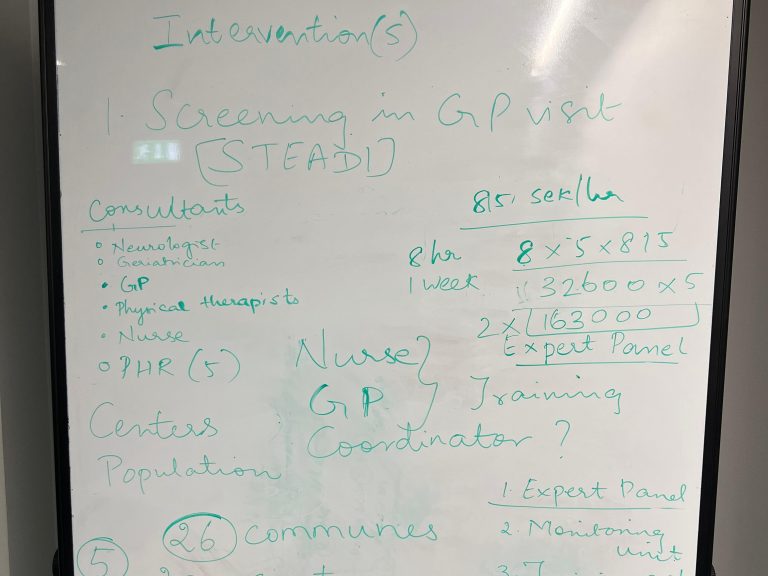 Intervention(s)
1. Screening in GP visit
[STEADI]
Consultants
Neurologist
Geriatrician
GP
Physical therapists
Nurse
PHR (5)
Centers
Population
815 sek/hr
8 hr 8 x 5 x 815
1 week 32600 x 5
2 x 163000
Expert Panel
Nurse
GP
Training
Coordinator ?
1. Expert Panel
2. Monitoring
unit
5
26 communes
3.